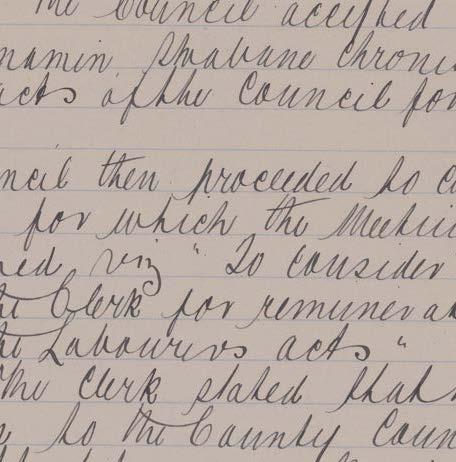 the Council accepted
namin Strabane Chroni
acts of the Council for
ncil then proceeded to c
for which the Meetin
ed viz " To consider
he Clerk for remunerat
he Labourers acts "
The Clerk stated that
to the County Coun